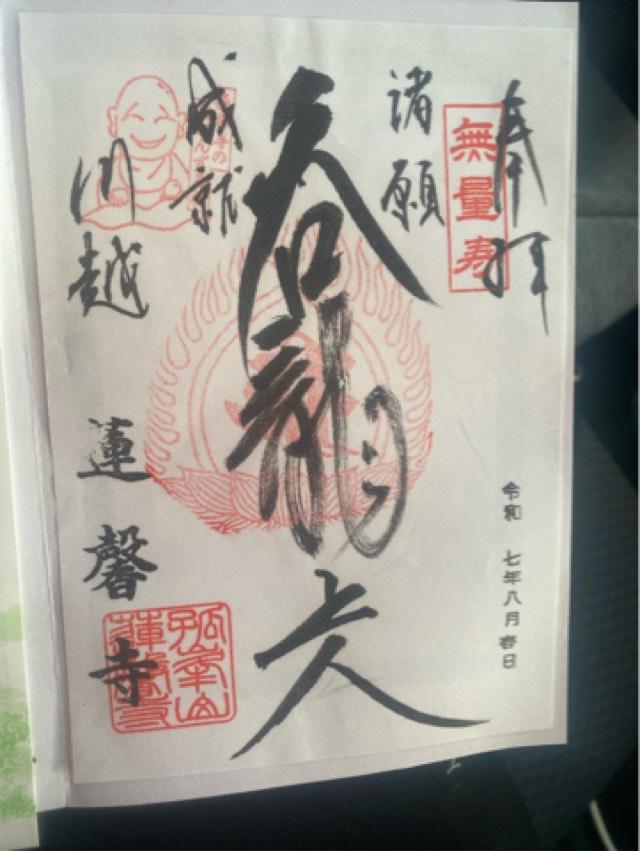 奉拝
無量寿
令和 七年八月 日
諸願
呑龍上人
成就
川越
蓮馨寺
孤峯山
蓮馨寺